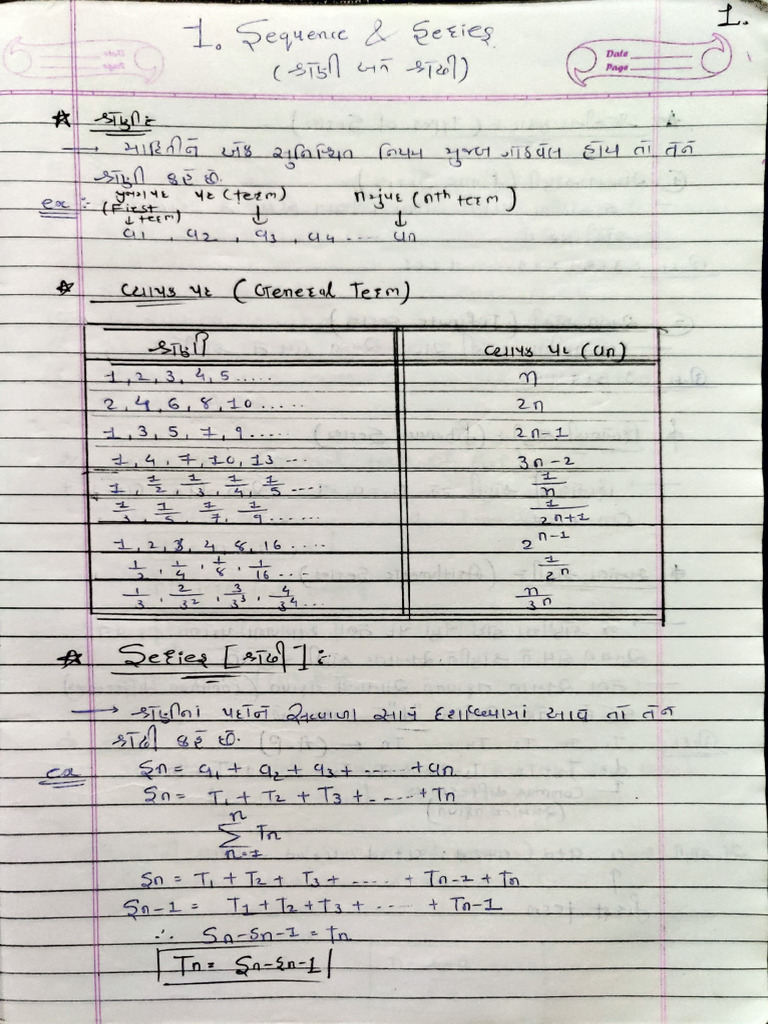 1.
1. Sequence & Series
(શ્રેણી અને શ્રેઢી)
Date
Page
* શ્રેણી :
→ માહિતીને એક સુનિશ્ચિત નિયમ મુજબ ગોઠવેલ હોય તો તેને
શ્રેણી કહે છે.
ex :- પ્રથમ પદ (First term) પદ (term) n મું પદ (nth term)
a1 , a2 , a3 , a4 .... an
* વ્યાપક પદ (General Term)
શ્રેણી વ્યાપક પદ (an)
1, 2, 3, 4, 5 ..... n
2, 4, 6, 8, 10 ..... 2n
1, 3, 5, 7, 9 ..... 2n-1
1, 4, 7, 10, 13 ... 3n-2
1, 1/2, 1/3, 1/4, 1/5 .... 1/n
1/3, 1/5, 1/7, 1/9 ...... 1/2n+1
1, 2, 3, 4, 8, 16 ..... 2^n-1
1/2, 1/4, 1/8, 1/16 ... 1/2^n
1/3, 2/3^2, 3/3^3, 4/3^4 ... n/3^n
* Series [શ્રેઢી] :
→ શ્રેણીનાં પદોને સરવાળા સાથે દર્શાવવામાં આવે તો તેને
શ્રેઢી કહે છે.
ex Sn = a1 + a2 + a3 + ...... + an.
Sn = T1 + T2 + T3 + ...... + Tn
n
∑ Tn
n=1
Sn = T1 + T2 + T3 + ..... + Tn-1 + Tn
Sn-1 = T1 + T2 + T3 + ..... + Tn-1
∴ Sn - Sn-1 = Tn
Tn = Sn - Sn-1